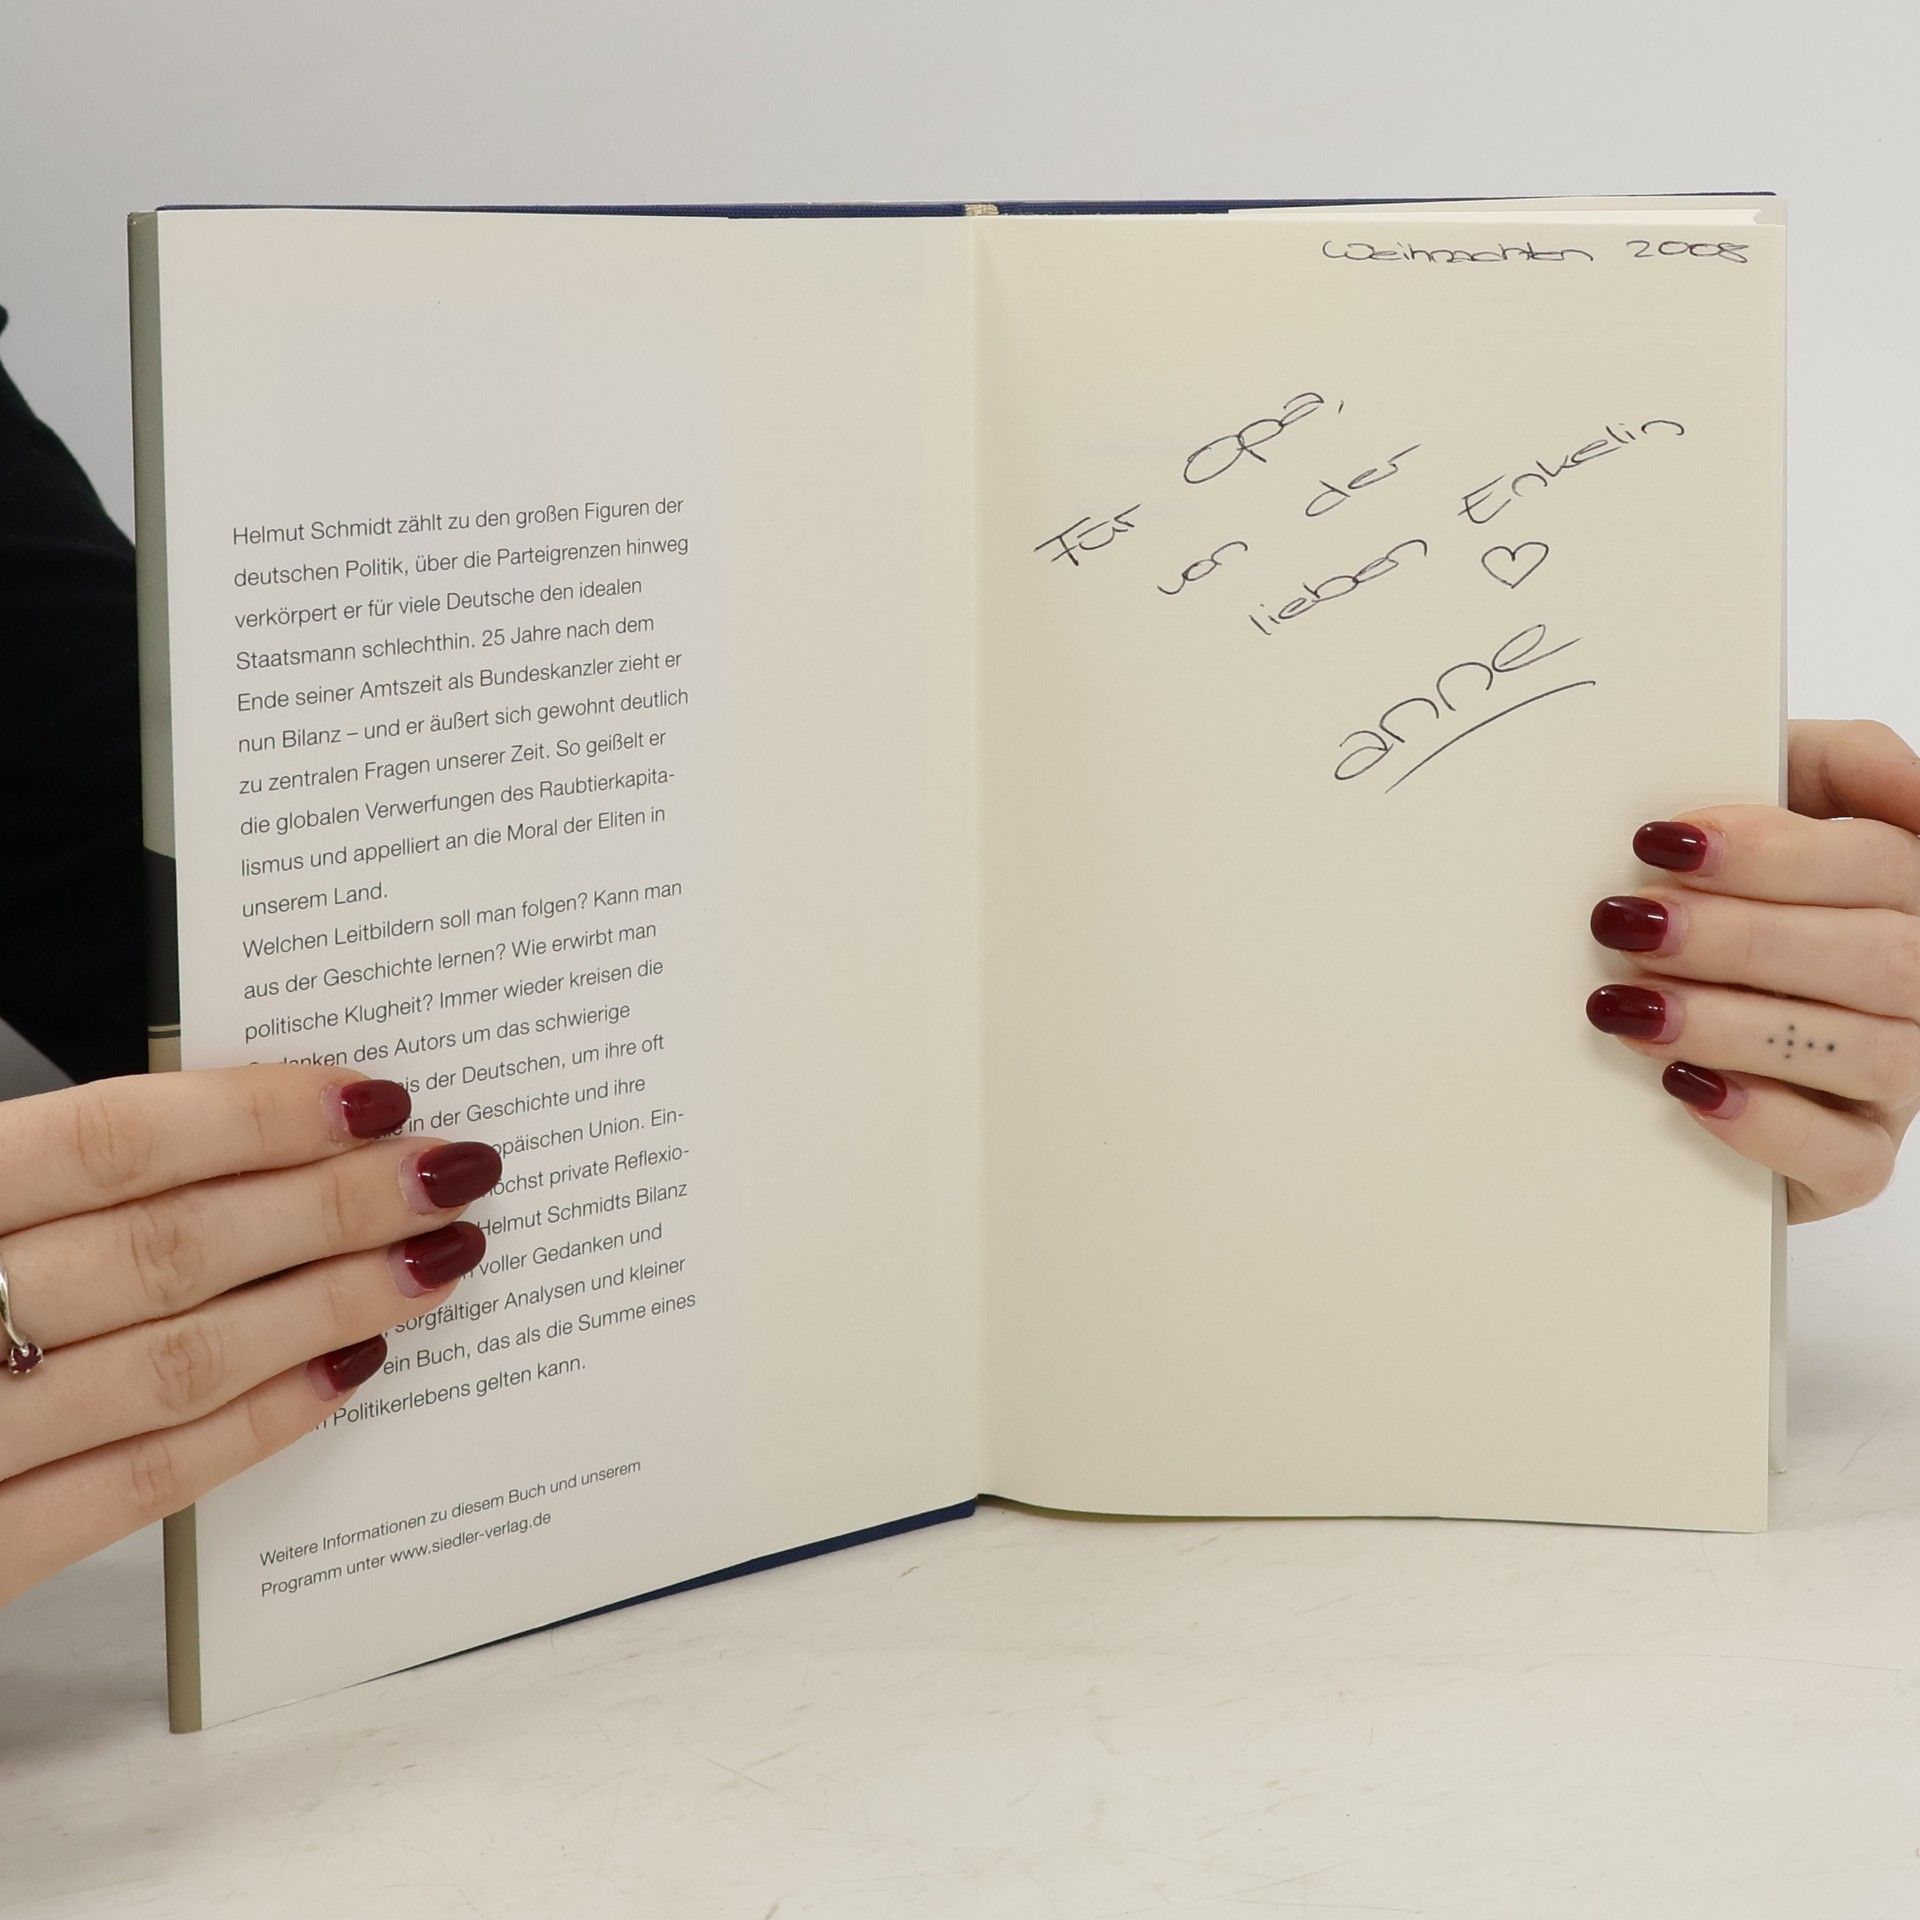 Helmut Schmidt zählt zu den großen Figuren der
deutschen Politik, über die Parteigrenzen hinweg
verkörpert er für viele Deutsche den idealen
Staatsmann schlechthin. 25 Jahre nach dem
Ende seiner Amtszeit als Bundeskanzler zieht er
nun Bilanz – und er äußert sich gewohnt deutlich
zu zentralen Fragen unserer Zeit. So geißelt er
die globalen Verwerfungen des Raubtierkapita-
lismus und appelliert an die Moral der Eliten in
unserem Land.
Welchen Leitbildern soll man folgen? Kann man
aus der Geschichte lernen? Wie erwirbt man
politische Klugheit? Immer wieder kreisen die
des Autors um das schwierige
der Deutschen, um ihre oft
in der Geschichte und ihre
Union. Ein-
private Reflexio-
Helmut Schmidts Bilanz
voller Gedanken und
sorgfältiger Analysen und kleiner
ein Buch, das als die Summe eines
Politikerlebens gelten kann.
Weitere Informationen zu diesem Buch und unserem
Programm unter www.siedler-verlag.de
Weihnachten 2008
Für Opa,
von der
lieben Enkelin
anne